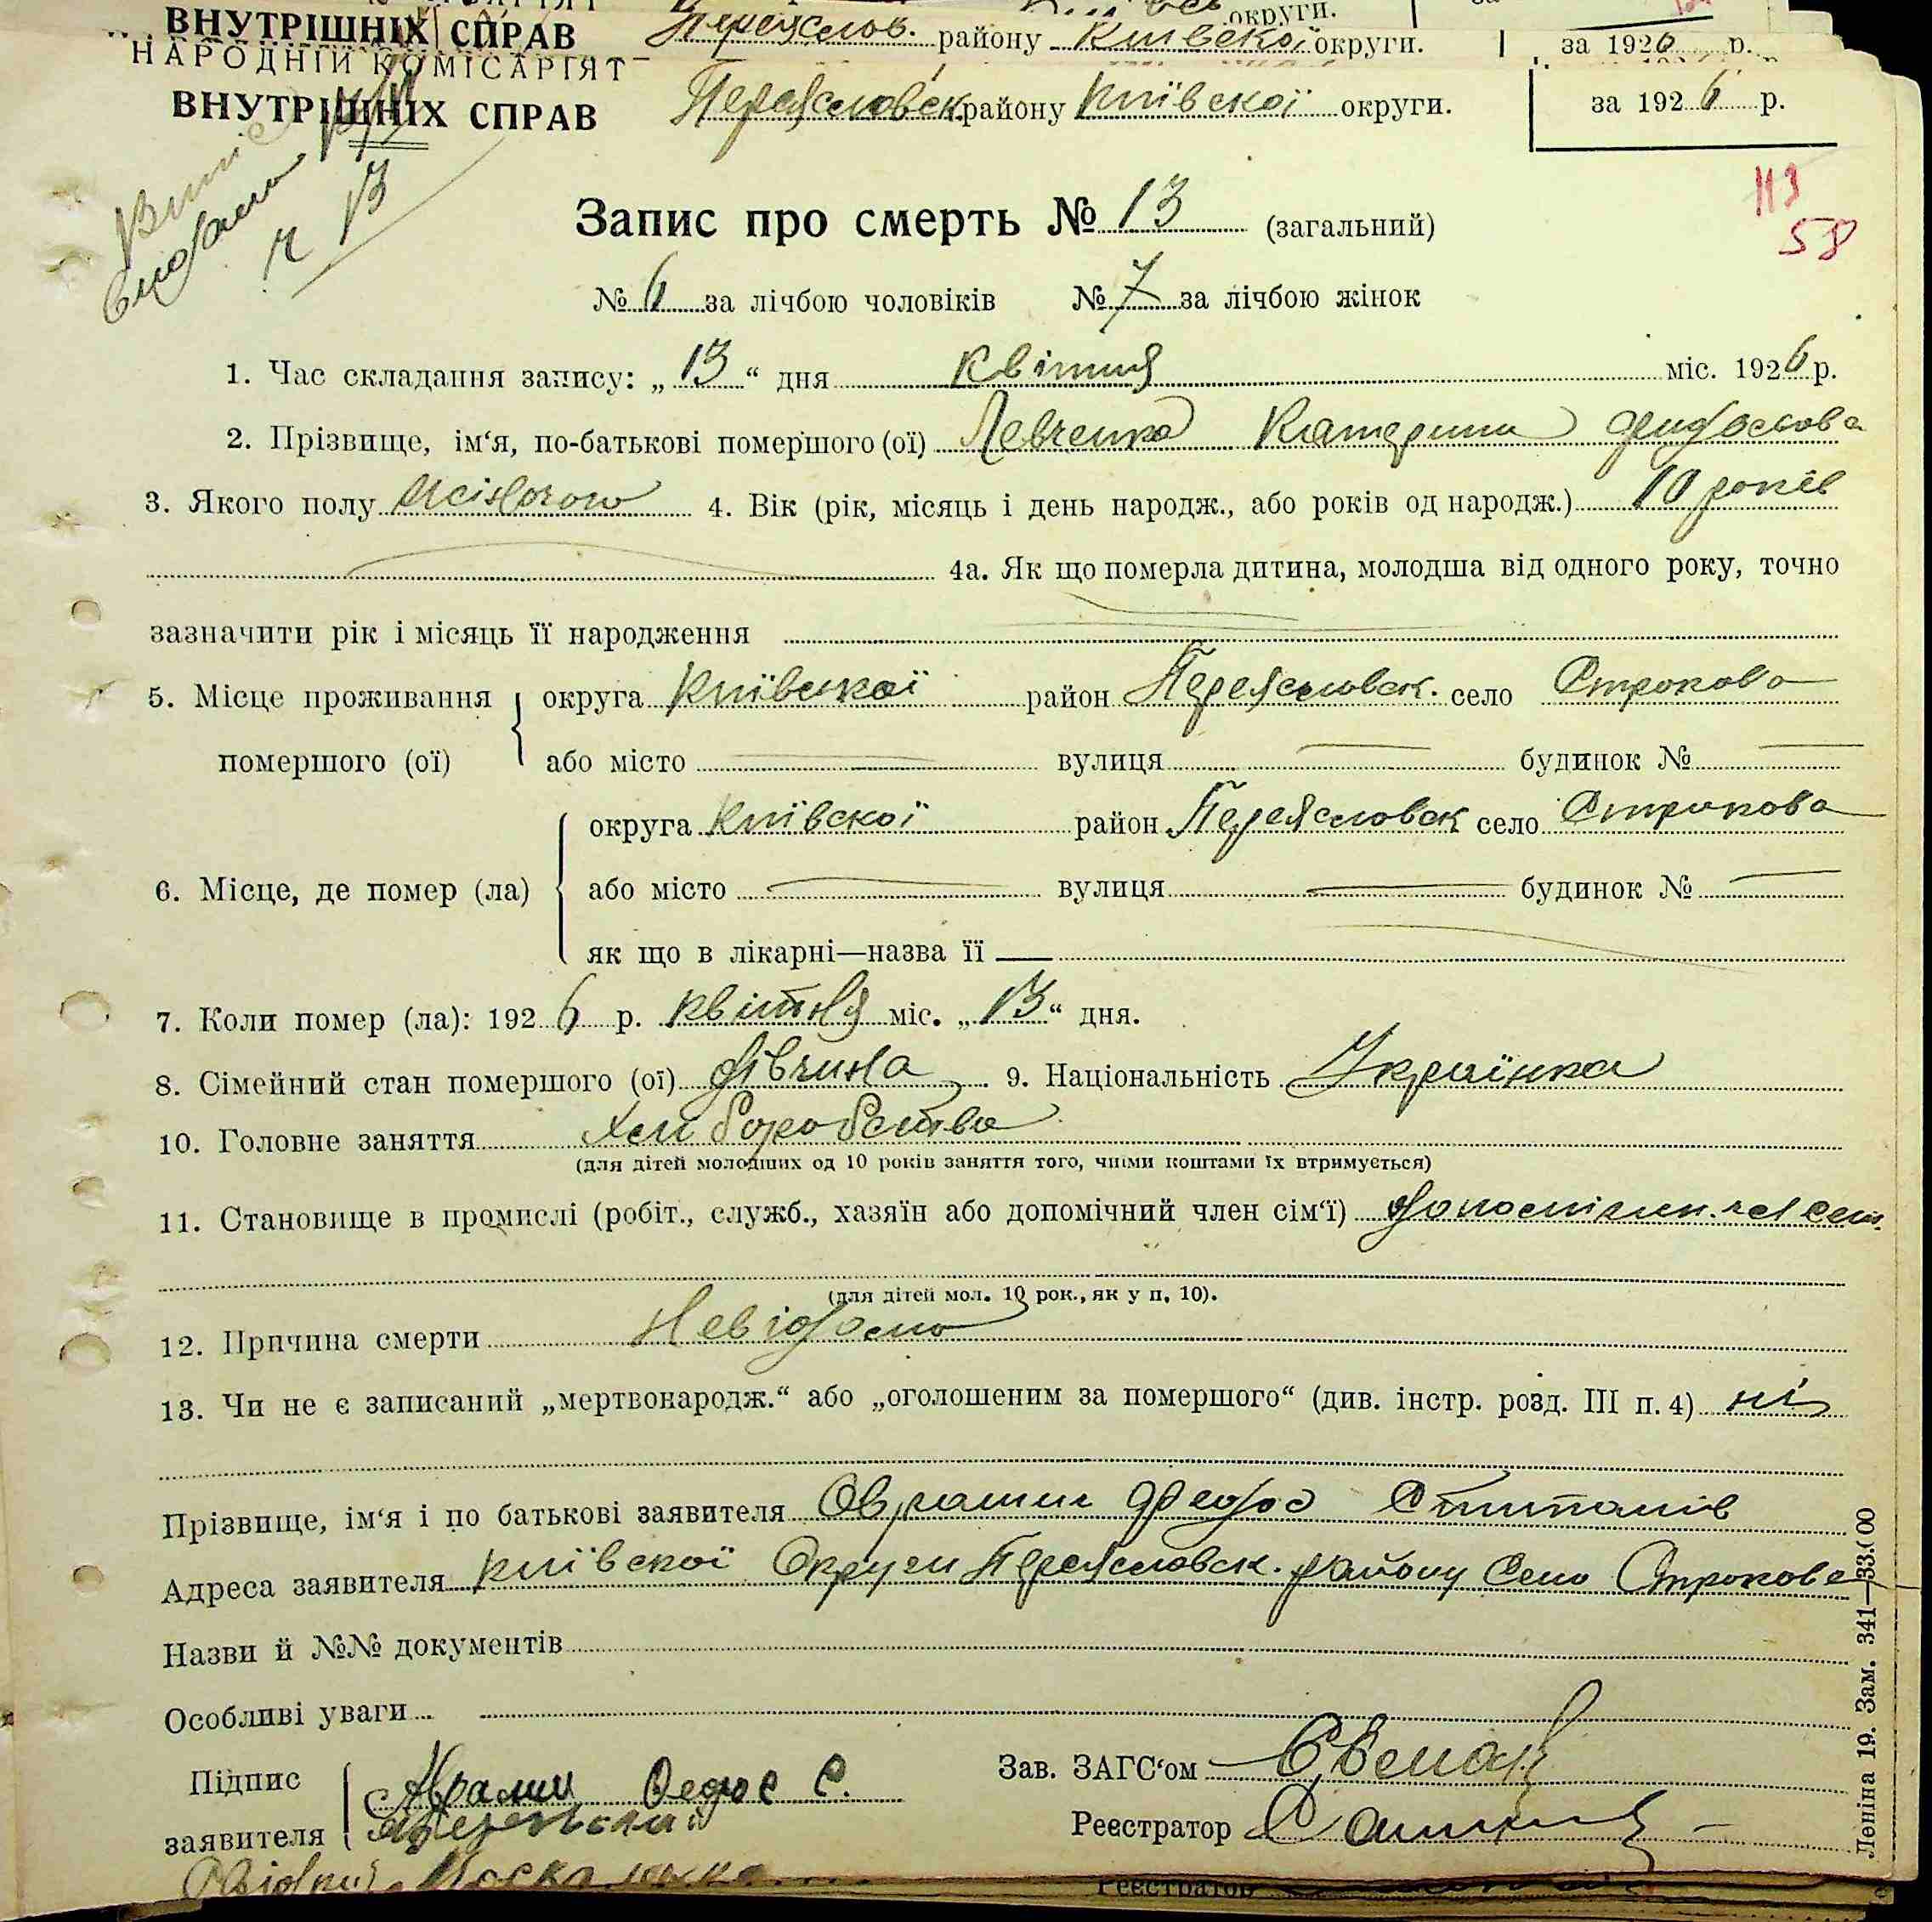 ВНУТРІШНІХ СПРАВ Переяслов. району Київскої округи. за 1926 р.
НАРОДНІЙ КОМІСАРІЯТ
ВНУТРІШНІХ СПРАВ Переясловск. району Київскої округи. за 1926 р.
113
58
Запис про смерть № 13 (загальний)
№ 6 за лічбою чоловіків № 7 за лічбою жінок
1. Час складання запису: „13“ дня квітня міс. 1926 р.
2. Прізвище, ім‘я, по-батькові помершого (ої) Левченко Катерина
3. Якого полу жіночого 4. Вік (рік, місяць і день народж., або років од народж.) 10 років
4а. Як що померла дитина, молодша від одного року, точно
зазначити рік і місяць її народження
5. Місце проживання помершого (ої) округа Київської район Переясловск. село Строкова
або місто вулиця будинок №
6. Місце, де помер (ла) округа Київскої район Переясловск село Строкова
або місто вулиця будинок №
як що в лікарні—назва її
7. Коли помер (ла): 1926 р. квітня міс. „13“ дня.
8. Сімейний стан помершого (ої) дівчина 9. Національність Українка
10. Головне заняття Хлиборобство
(для дітей молодших од 10 років заняття того, чиїми коштами їх втримується)
11. Становище в промислі (робіт., служб., хазяїн або допомічний член сім‘ї)
(для дітей мол. 10 рок., як у п. 10).
12. Причина смерти Невідомо
13. Чи не є записаний „мертвонародж.“ або „оголошеним за помершого“ (див. інстр. розд. III п. 4) ні
Прізвище, ім‘я і по батькові заявителя Федос
Адреса заявителя Київскої Округи Переясловск. району Село Строкова
Назви й №№ документів
Особливі уваги
Підпис заявителя Федос С.
Зав. ЗАГС‘ом
Реєстратор
Леніна 19. Зам. 341—33.000
Реєстратор